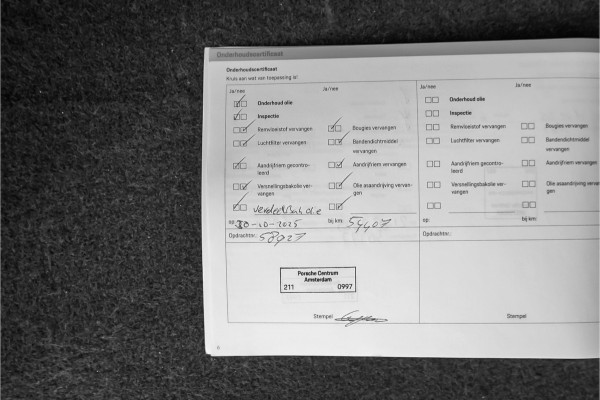 Onderhoudscertificaat
Onderhoudscertificaat
Kruis aan wat van toepassing is!
Ja/nee Ja/nee
Onderhoud olie
Inspectie
Remvloeistof vervangen Bougies vervangen
Luchtfilter vervangen Bandendichtmiddel
vervangen
Aandrijfriem gecontro-
leerd Aandrijfriem vervangen
Versnellingsbakolie ver-
vangen Olie asaandrijving vervan-
gen
olie
op: 30-10-2025 bij km: 54407
Opdrachtnr.: 58927
Porsche Centrum
Amsterdam
211 0997
Stempel
6
Ja/nee Ja/nee
Onderhoud olie
Inspectie
Remvloeistof vervangen Bougies vervangen
Luchtfilter vervangen Bandendichtmiddel
vervangen
Aandrijfriem gecontro-
leerd Aandrijfriem vervangen
Versnellingsbakolie ver-
vangen Olie asaandrijving
gen
op: bij km:
Opdrachtnr.:
Stempel